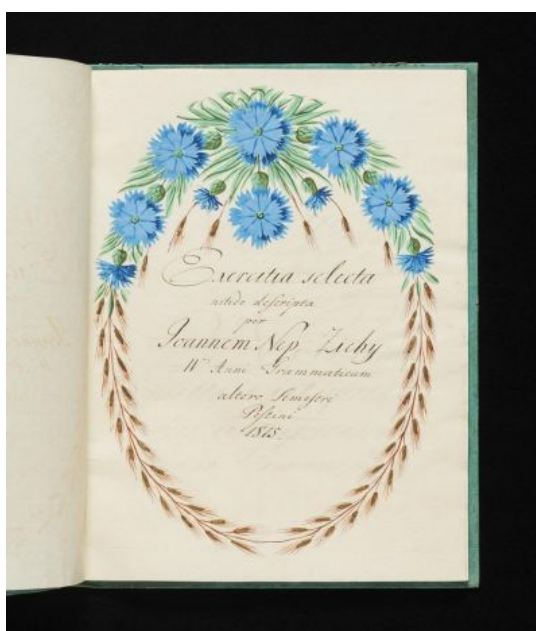 Exercitia selecta
nitide descripta
per
Joannem Nep. Zichy
Anni Grammaticum
altero Semestri
Pestini